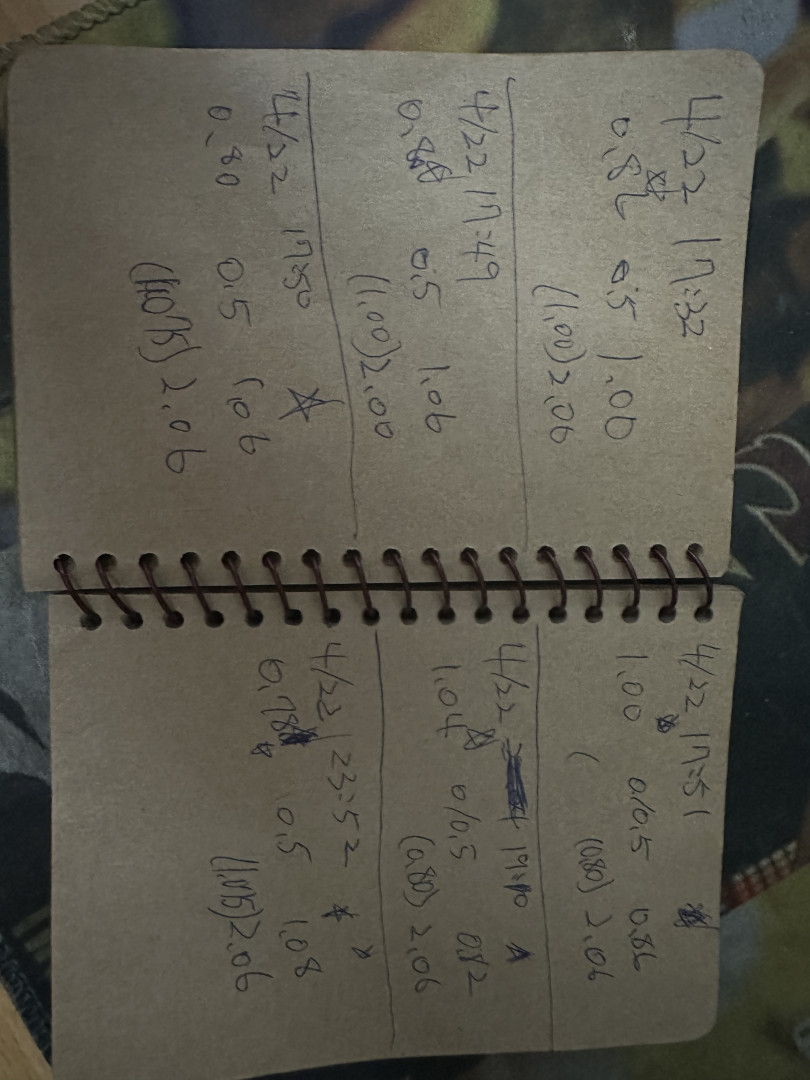 4/22 17:32
0.82 0.5 1.00
(1.00) 2.06
4/22 17:49
0.8 0.5 1.06
(1.00) 2.00
4/22 17:50
0.80 0.5 1.06
2.06
4/22 17:51
1.00 0/0.5 0.86
(
(0.80) 2.06
4/22
1.04 0/0.5 0.82
(0.80) 2.06
4/22 23:52
0.78 0.5 1.08
2.06